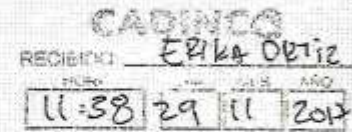 CADINCO
RECIBIDO ERIKA ORTIZ
HORA DIA MES AÑO
11:38 29 11 2017